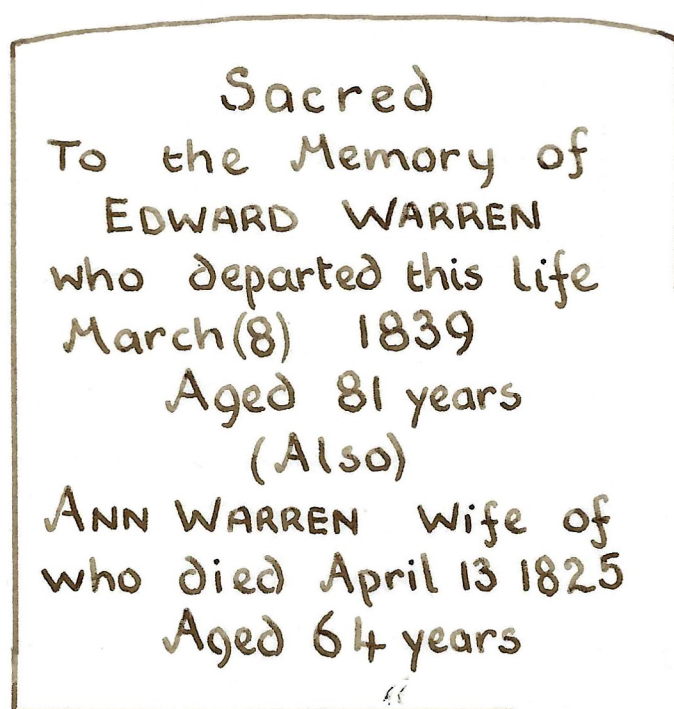 Sacred
To the Memory of
EDWARD WARREN
who departed this life
March (8) 1839
Aged 81 years
(Also)
ANN WARREN Wife of
who died April 13 1825
Aged 64 years